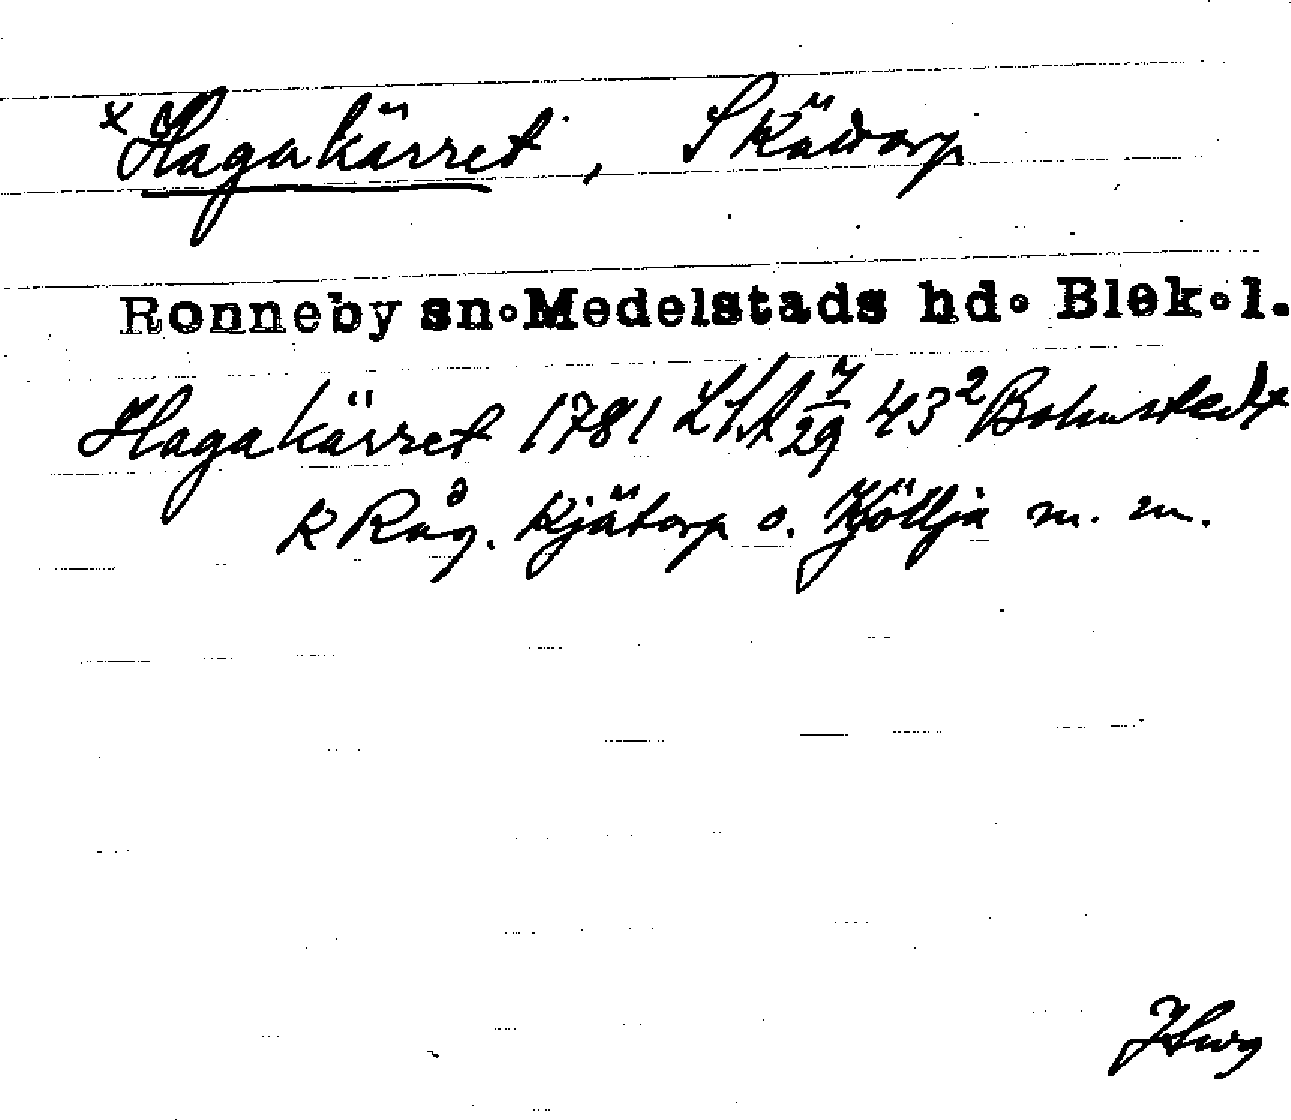 x Hagakärret, Skädtorp
Ronneby sn. Medelstads hd. Blek. l.
Hagakärret 1781 LSA 7/29 43² Bohnstedt
k Råg. Kjätorp o. Kjöllja m. m.